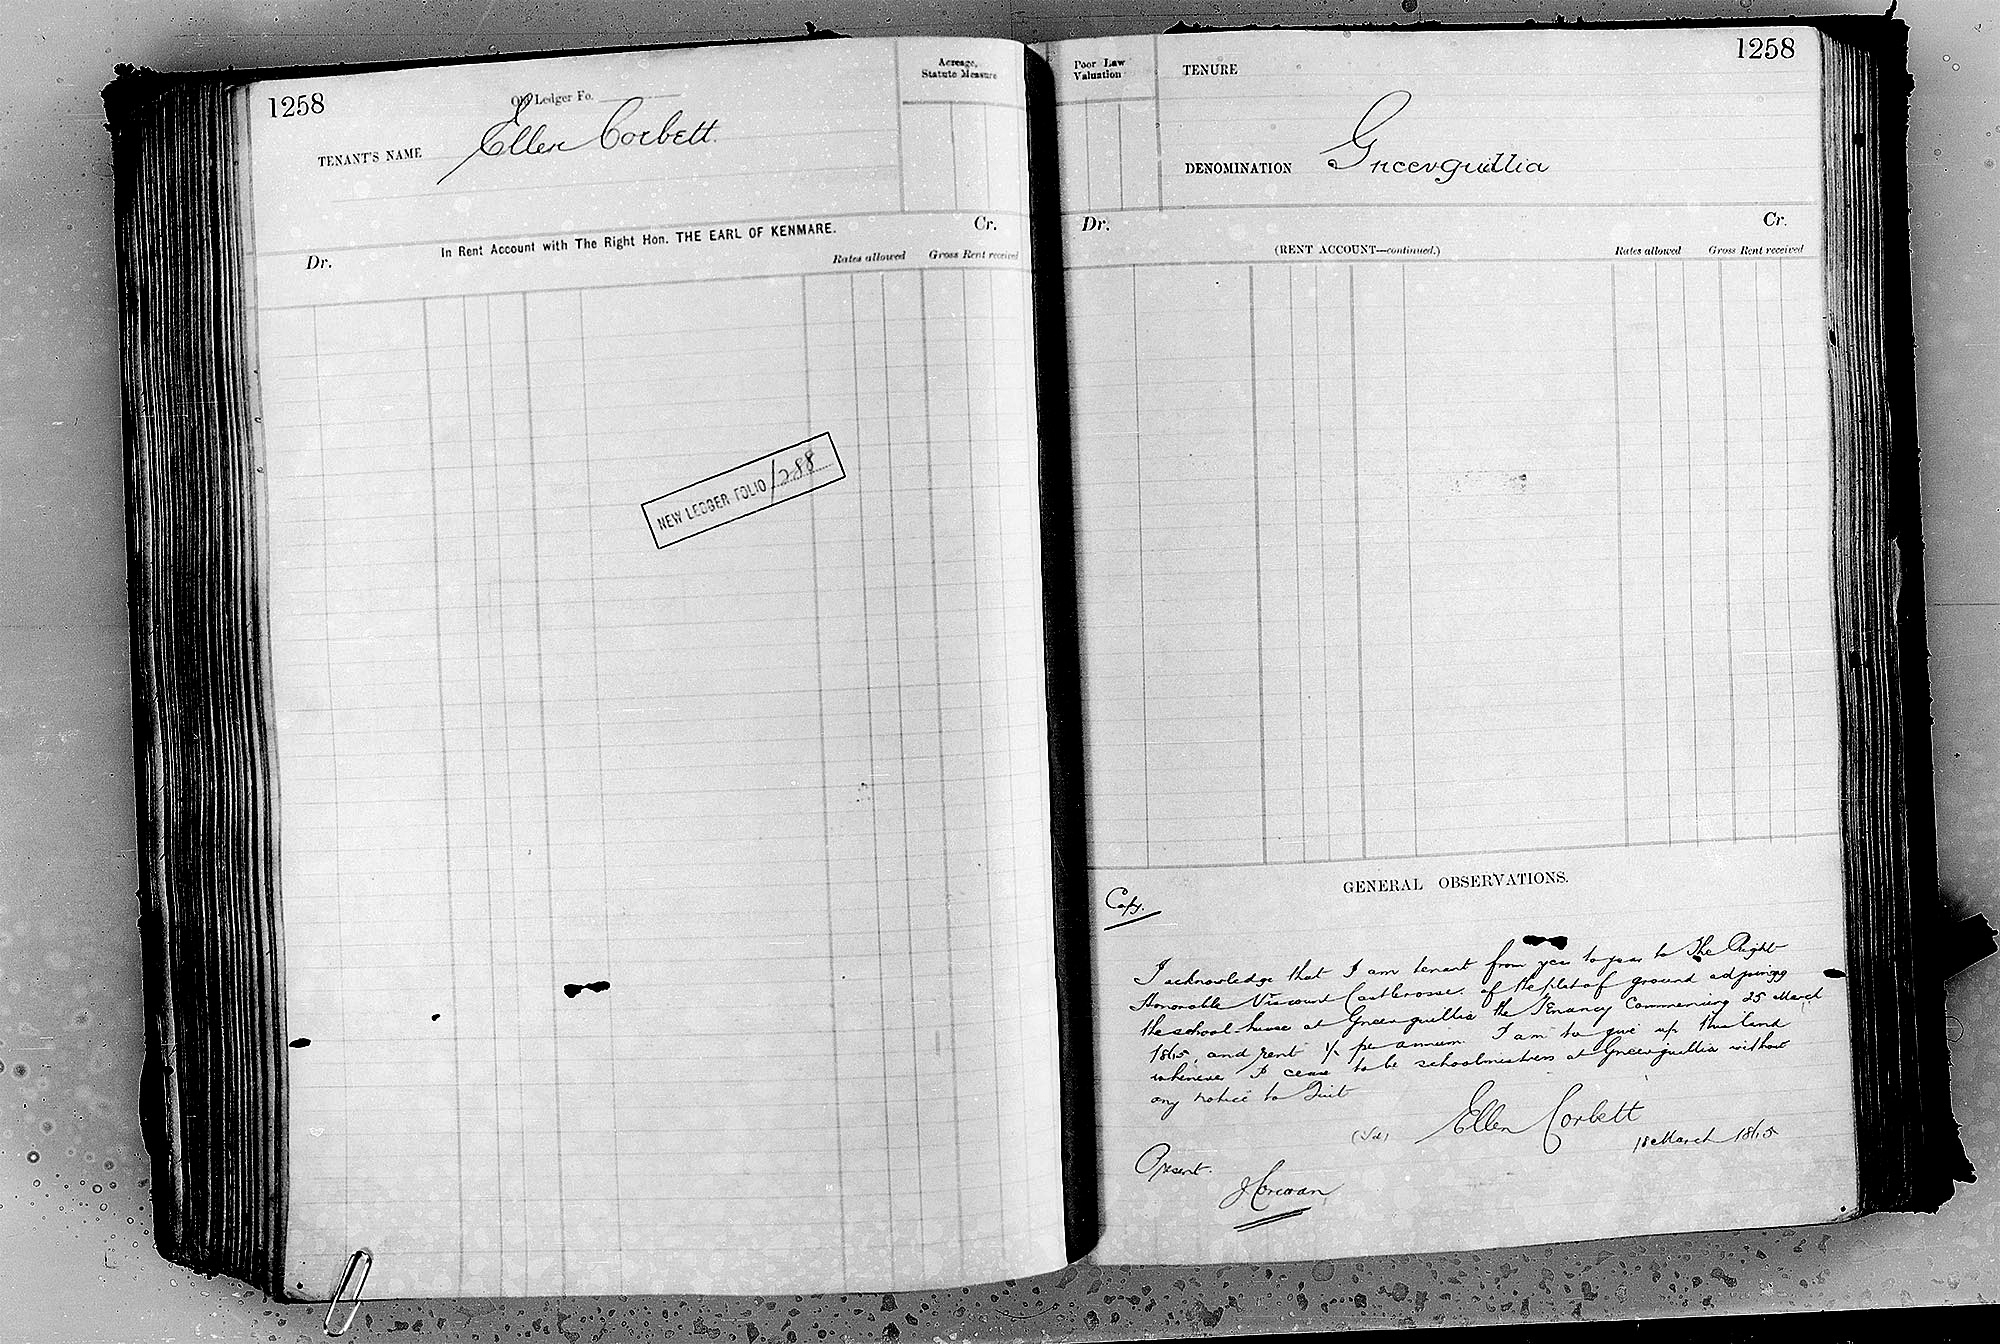 1258
Old Ledger Fo.
TENANT'S NAME Ellen Corbett.
Acreage,
Statute Measure
In Rent Account with The Right Hon. THE EARL OF KENMARE.
Cr.
Dr.
Rates allowed Gross Rent received
NEW LEDGER FOLIO 1288
Poor Law
Valuation
TENURE
1258
DENOMINATION Gneevguillia
Dr.
Cr.
(RENT ACCOUNT—continued.)
Rates allowed Gross Rent received
GENERAL OBSERVATIONS.
Copy.
I acknowledge that I am tenant from year to year to The Right
Honorable Viscount Castlerosse, of the plot of ground adjoining
the school house at Gneevguillia the Tenancy Commencing 25 March
1865, and rent 1/- per annum. I am to give up this land
whenever I cease to be schoolmistress at Gneevguillia without
any notice to Quit
(Sd) Ellen Corbett
18 March 1865
Present.